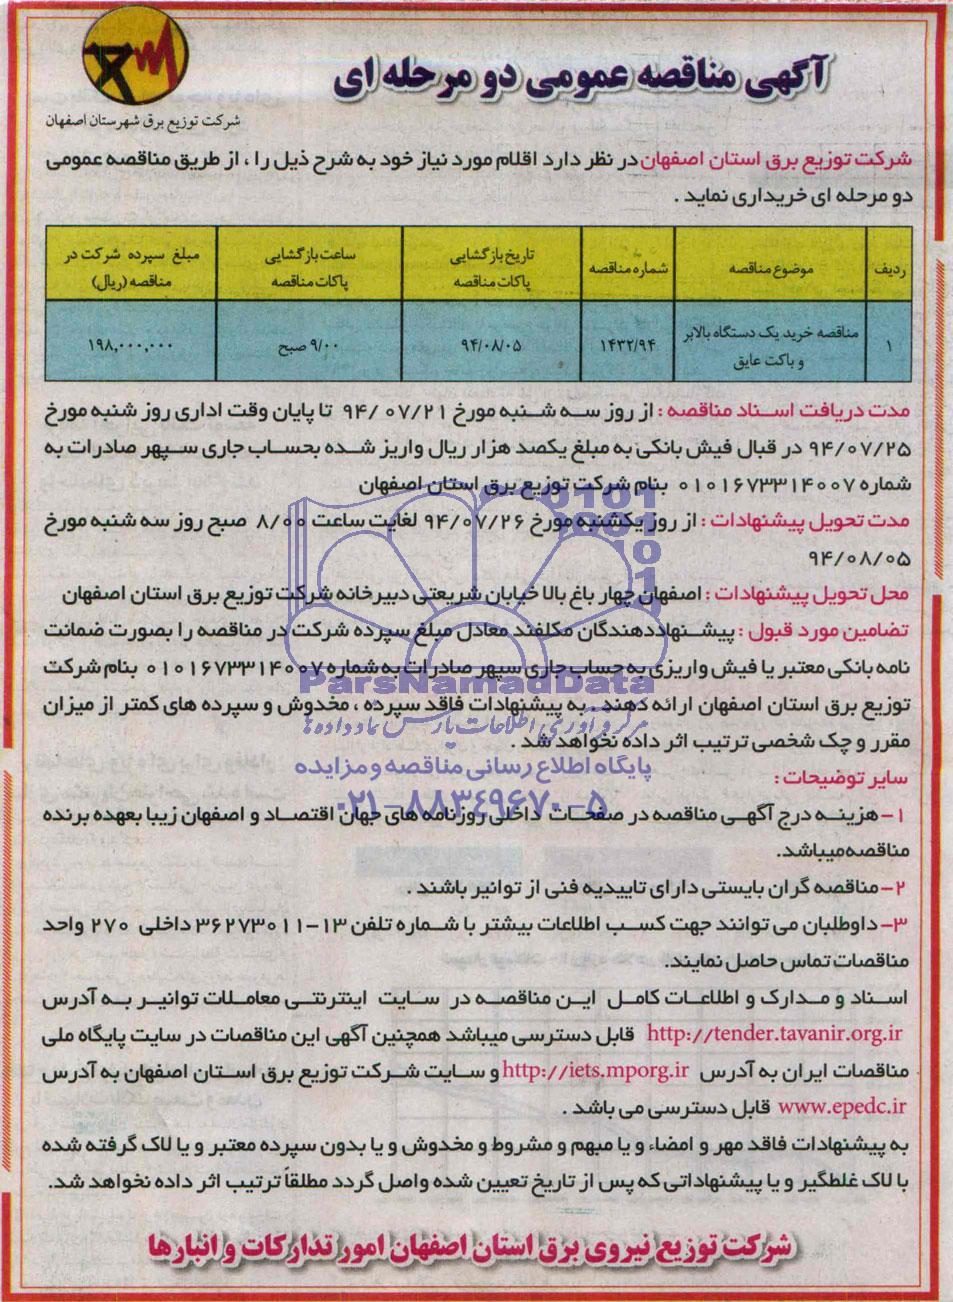 شرکت توزیع برق شهرستان اصفهان
آگهی مناقصه عمومی دو مرحله ای
شرکت توزیع برق استان اصفهان در نظر دارد اقلام مورد نیاز خود به شرح ذیل را ، از طریق مناقصه عمومی
دو مرحله ای خریداری نماید .
ردیف موضوع مناقصه شماره مناقصه تاریخ بازگشایی پاکات مناقصه ساعت بازگشایی پاکات مناقصه مبلغ سپرده شرکت در مناقصه (ریال)
۱ مناقصه خرید یک دستگاه بالابر و باکت عایق ۱۴۳۲/۹۴ ۹۴/۰۸/۰۵ ۹/۰۰ صبح ۱۹۸,۰۰۰,۰۰۰
مدت دریافت اسناد مناقصه : از روز سه شنبه مورخ ۹۴/ ۰۷/۲۱ تا پایان وقت اداری روز شنبه مورخ
۹۴/۰۷/۲۵ در قبال فیش بانکی به مبلغ یکصد هزار ریال واریز شده بحساب جاری سپهر صادرات به
شماره ۰۱۰۱۶۷۳۳۱۴۰۰۷ بنام شرکت توزیع برق استان اصفهان
مدت تحویل پیشنهادات : از روز یکشنبه مورخ ۹۴/۰۷/۲۶ لغایت ساعت ۸/۰۰ صبح روز سه شنبه مورخ
۹۴/۰۸/۰۵
محل تحویل پیشنهادات : اصفهان چهار باغ بالا خیابان شریعتی دبیرخانه شرکت توزیع برق استان اصفهان
تضامین مورد قبول : پیشنهاددهندگان مکلفند معادل مبلغ سپرده شرکت در مناقصه را بصورت ضمانت
نامه بانکی معتبر یا فیش واریزی به حساب جاری سپهر صادرات به شماره ۰۱۰۱۶۷۳۳۱۴۰۰۷ بنام شرکت
توزیع برق استان اصفهان ارائه دهند . به پیشنهادات فاقد سپرده ، مخدوش و سپرده های کمتر از میزان
مقرر و چک شخصی ترتیب اثر داده نخواهد شد .
سایر توضیحات :
۱- هزینه درج آگهی مناقصه در صفحات داخلی روزنامه های جهان اقتصاد و اصفهان زیبا بعهده برنده
مناقصه میباشد.
۲- مناقصه گران بایستی دارای تاییدیه فنی از توانیر باشند .
۳- داوطلبان می توانند جهت کسب اطلاعات بیشتر با شماره تلفن ۱۳-۳۶۲۷۳۰۱۱ داخلی ۲۷۰ واحد
مناقصات تماس حاصل نمایند.
اسناد و مدارک و اطلاعات کامل این مناقصه در سایت اینترنتی معاملات توانیر به آدرس
http://tender.tavanir.org.ir قابل دسترسی میباشد همچنین آگهی این مناقصات در سایت پایگاه ملی
مناقصات ایران به آدرس http://iets.mporg.ir و سایت شرکت توزیع برق استان اصفهان به آدرس
www.epedc.ir قابل دسترسی می باشد .
به پیشنهادات فاقد مهر و امضاء و یا مبهم و مشروط و مخدوش و یا بدون سپرده معتبر و یا لاک گرفته شده
با لاک غلطگیر و یا پیشنهاداتی که پس از تاریخ تعیین شده واصل گردد مطلقاً ترتیب اثر داده نخواهد شد.
شرکت توزیع نیروی برق استان اصفهان امور تدارکات و انبارها
ParsNamadData
مرکز فرآوری اطلاعات پارس نماد داده ها
پایگاه اطلاع رسانی مناقصه و مزایده
۰۲۱-۸۸۳۴۹۶۷۰-۵